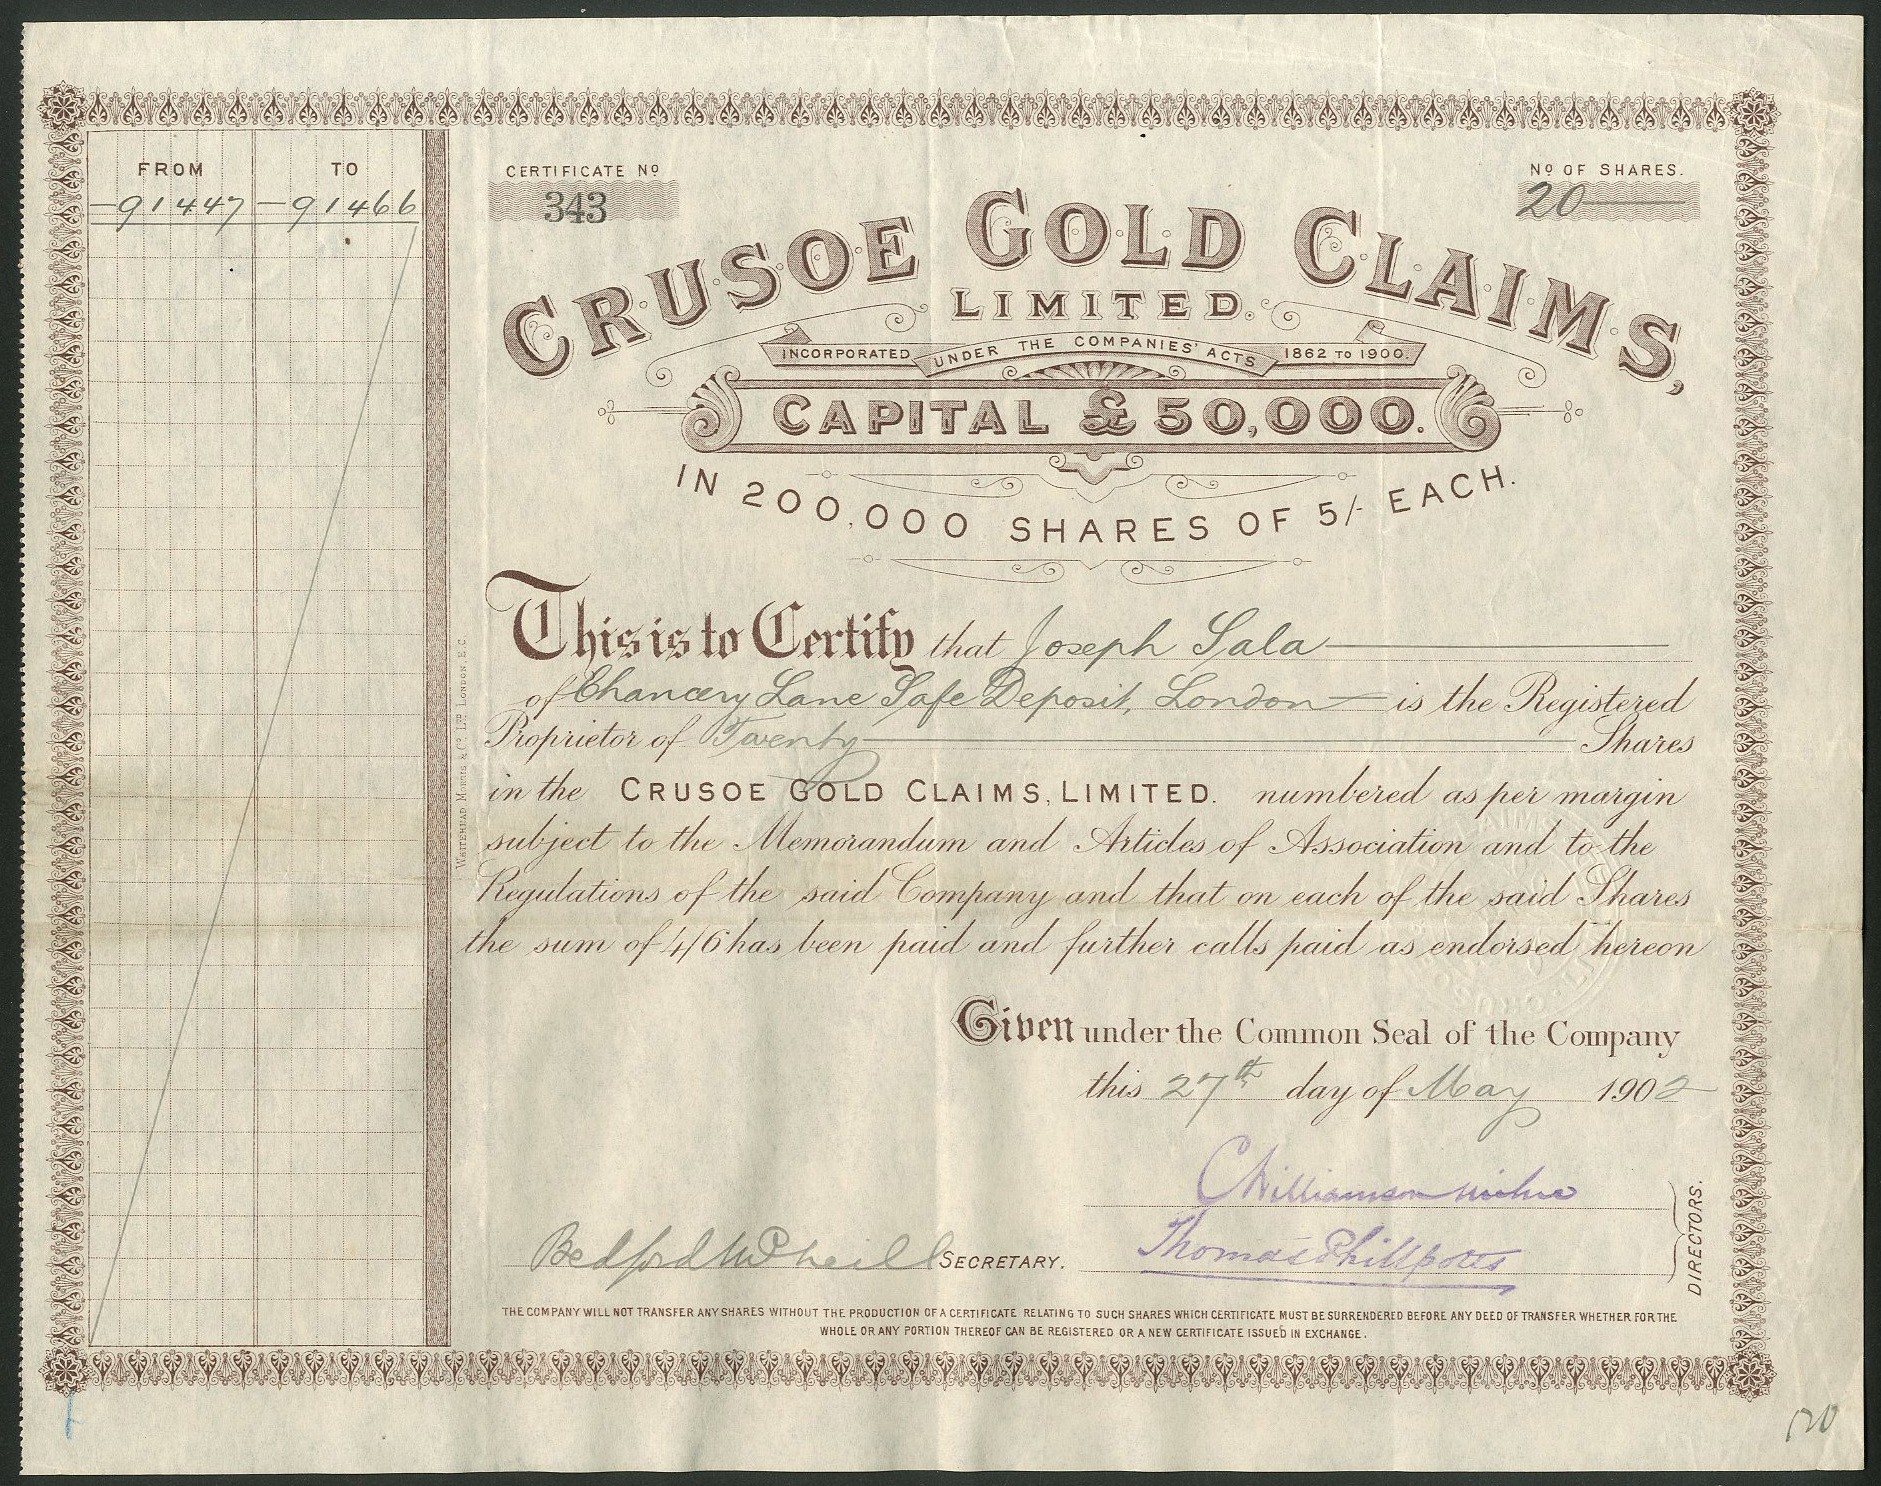 FROM TO
91447 - 91466
CERTIFICATE Nº
343
Nº OF SHARES.
20
CRUSOE GOLD CLAIMS,
LIMITED.
INCORPORATED UNDER THE COMPANIES' ACTS 1862 TO 1900.
CAPITAL £50,000.
IN 200,000 SHARES OF 5/- EACH.
This is to Certify that Joseph Sala
of Chancery Lane Safe Deposit, London is the Registered
Proprietor of Twenty Shares
in the CRUSOE GOLD CLAIMS, LIMITED. numbered as per margin
subject to the Memorandum and Articles of Association and to the
Regulations of the said Company and that on each of the said Shares
the sum of 4/6 has been paid and further calls paid as endorsed hereon
Given under the Common Seal of the Company
this 27th day of May 1902
C Williamson Milne
Thomas Phillpotts
DIRECTORS.
Bedford McNeill SECRETARY.
THE COMPANY WILL NOT TRANSFER ANY SHARES WITHOUT THE PRODUCTION OF A CERTIFICATE RELATING TO SUCH SHARES WHICH CERTIFICATE MUST BE SURRENDERED BEFORE ANY DEED OF TRANSFER WHETHER FOR THE
WHOLE OR ANY PORTION THEREOF CAN BE REGISTERED OR A NEW CERTIFICATE ISSUED IN EXCHANGE.
WHITEHEAD MORRIS & Co. LTD. LONDON, E.C.